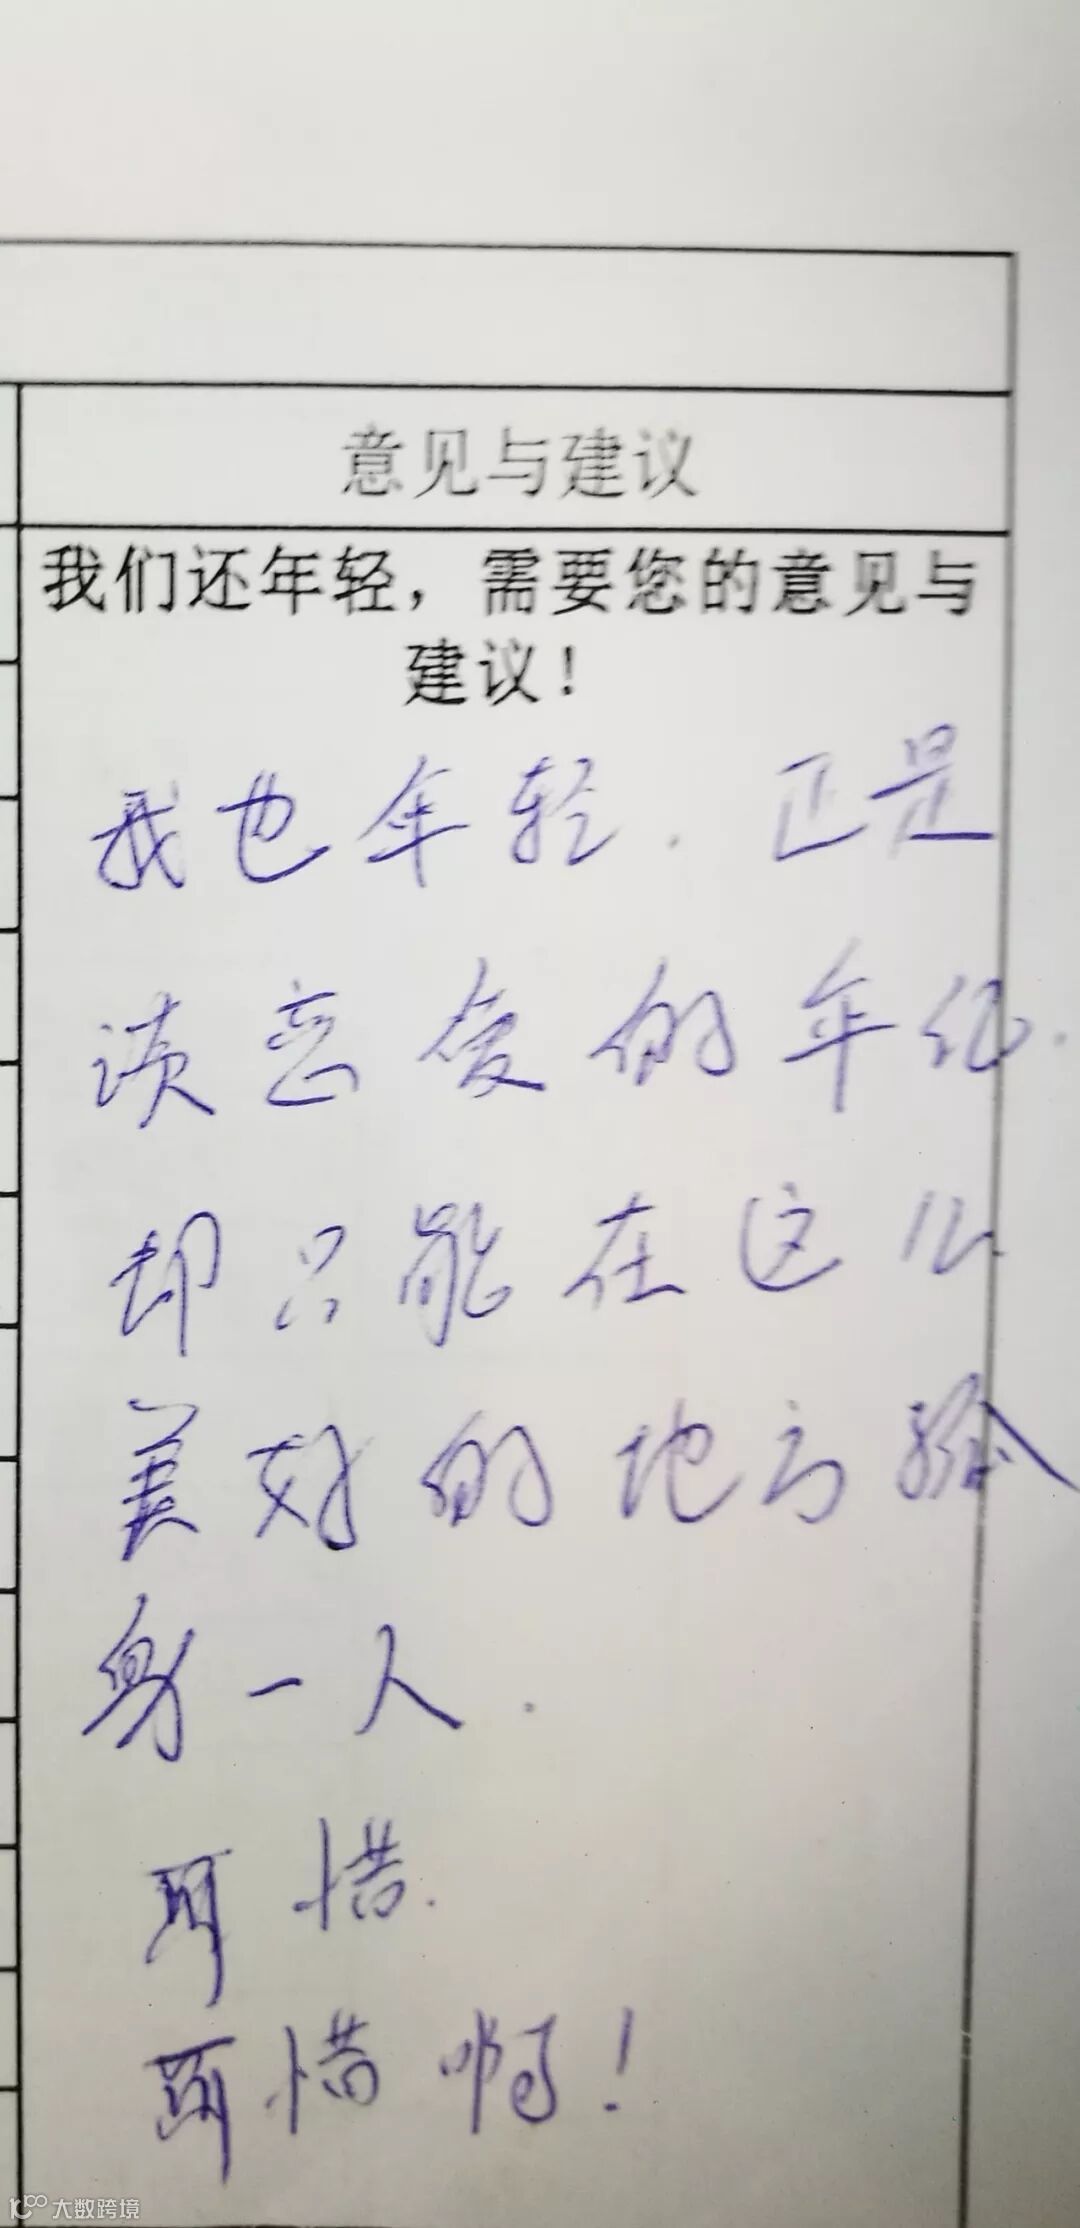 意见与建议
我们还年轻，需要您的意见与
建议！
我也年轻．正是
谈恋爱的年纪．
却只能在这么
美好的地方孤
身一人．
可惜．
可惜啊！
大数跨境